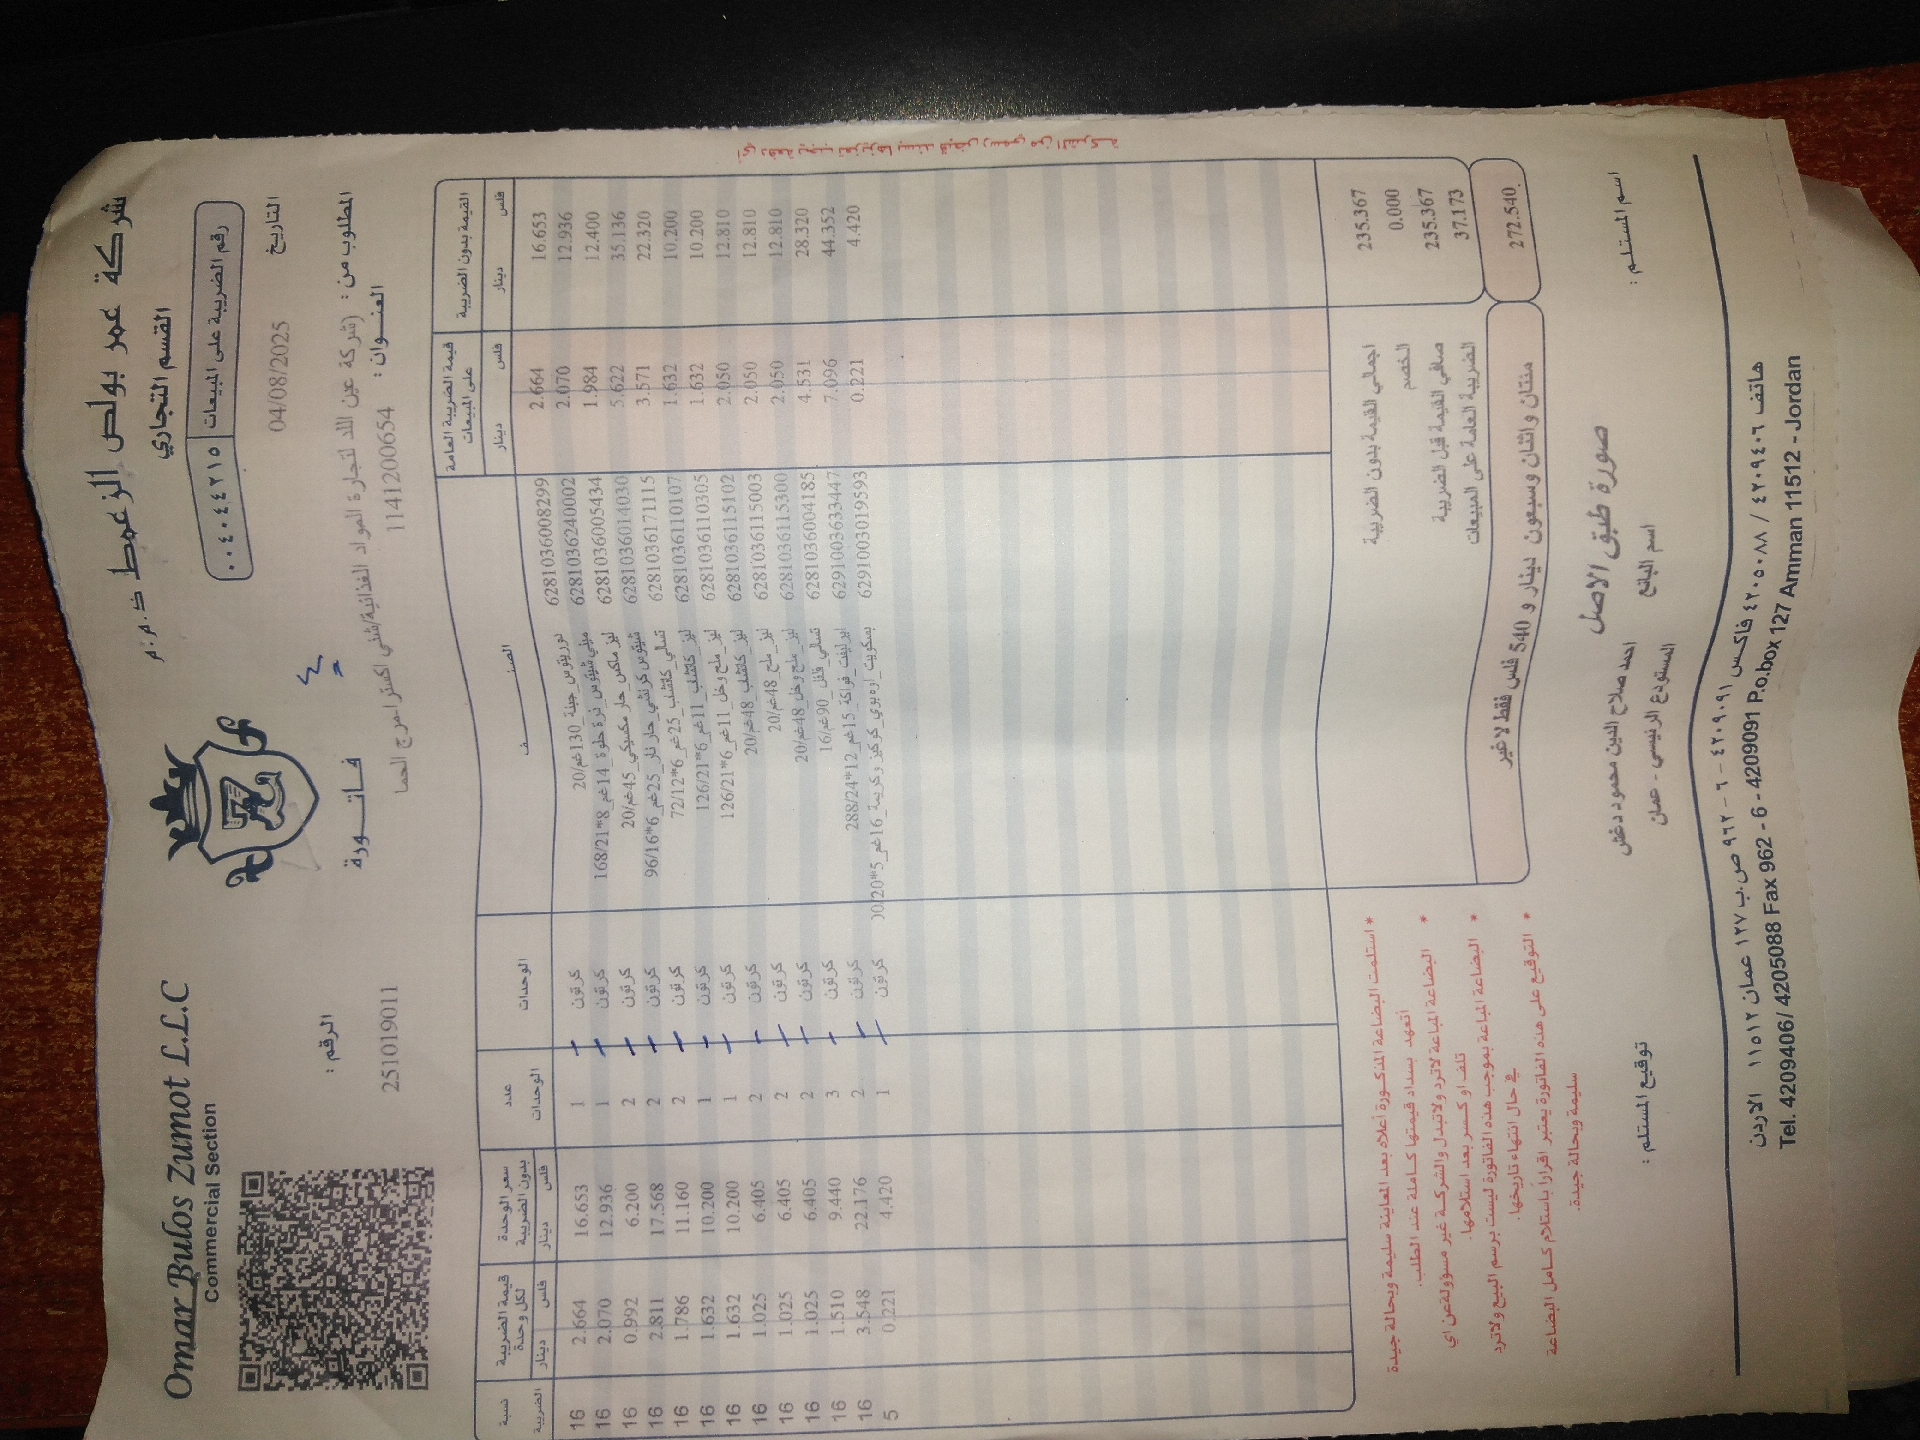 Omar Bulos Zumot L.L.C
Commercial Section
شركة عمر بولص الزعمط ذ.م.م
القسم التجاري
رقم الضريبة على المبيعات ٠٠٤٠٤٤٢١٥
التاريخ 04/08/2025
فاتورة
الرقم :
251019011
المطلوب من : (شركة عين اللد لتجارة المواد الغذائية/
العنوان : 114120654 مرج الحمام
نسبة الضريبة | قيمة الضريبة لكل وحدة دينار فلس | سعر الوحدة بدون الضريبة دينار فلس | عدد الوحدات | الوحدات | الصنف | قيمة الضريبة العامة على المبيعات دينار فلس | القيمة بدون الضريبة دينار فلس
16 2.664 16.653 1 كرتون دوريتوس_جبنة_130غم/20 6281036008299 2.664 16.653
16 2.070 12.936 1 كرتون ميني شيتوس_ذرة حلوة_14غم_8*168/21 6281036240002 2.070 12.936
16 0.992 6.200 2 كرتون ليز ماكس_حار مكسيكي_45غم/20 6281036005434 1.984 12.400
16 2.811 17.568 2 كرتون شيتوس كرنشي_حار نار_25غم_6*96/16 6281036014030 5.622 35.136
16 1.786 11.160 2 كرتون تسالي_كاتشاب_25غم_6*72/12 6281036171115 3.571 22.320
16 1.632 10.200 1 كرتون ليز_كاتشاب_11غم_6*126/21 6281036110107 1.632 10.200
16 1.632 10.200 1 كرتون ليز_ملح وخل_11غم_6*126/21 6281036110305 1.632 10.200
16 1.025 6.405 2 كرتون ليز_كاتشاب_48غم/20 6281036115102 2.050 12.810
16 1.025 6.405 2 كرتون ليز_ملح_48غم/20 6281036115003 2.050 12.810
16 1.025 6.405 2 كرتون ليز_ملح وخل_48غم/20 6281036115300 2.050 12.810
16 1.510 9.440 3 كرتون تسالي_فلفل_90غم/16 6281036004185 4.531 28.320
16 3.548 22.176 2 كرتون ايرليفت_فواكة_15غم_12*288/24 6291003633447 7.096 44.352
5 0.221 4.420 1 كرتون بسكويت_اره بوي_كوكيز وكريمة_16غم_5*00/20 6291003019593 0.221 4.420
اجمالي القيمة بدون الضريبة 235.367
الخصم 0.000
صافي القيمة قبل الضريبة 235.367
الضريبة العامة على المبيعات 37.173
مئتان واثنان وسبعون دينار و 540 فلس فقط لا غير 272.540
* استلمت البضاعة المذكورة أعلاه بعد المعاينة سليمة وبحالة جيدة
أتعهد بسداد قيمتها كاملة عند الطلب.
* البضاعة المباعة لاترد ولاتبدل والشركة غير مسؤولة عن اي
تلف او كسر بعد استلامها.
* البضاعة المباعة بموجب هذه الفاتورة ليست برسم البيع ولا ترد
في حال انتهاء تاريخها.
* التوقيع على هذه الفاتورة يعتبر اقراراً باستلام كامل البضاعة
سليمة وبحالة جيدة.
صورة طبق الاصل
اسم البائع احمد صلاح الدين محمود دغش
المستودع الرئيسي - عمان
اسم المستلم :
توقيع المستلم :
هاتف ٤٢٠٩٤٠٦ / ٤٢٠٥٠٨٨ فاكس ٤٢٠٩٠٩١ - ٦ - ٩٦٢ ص.ب ١٢٧ عمان ١١٥١٢ الاردن
Tel. 4209406/ 4205088 Fax 962 - 6 - 4209091 P.o.box 127 Amman 11512 - Jordan
أي دفعة يجب تعزيزها بسند قبض رسمي من الشركة